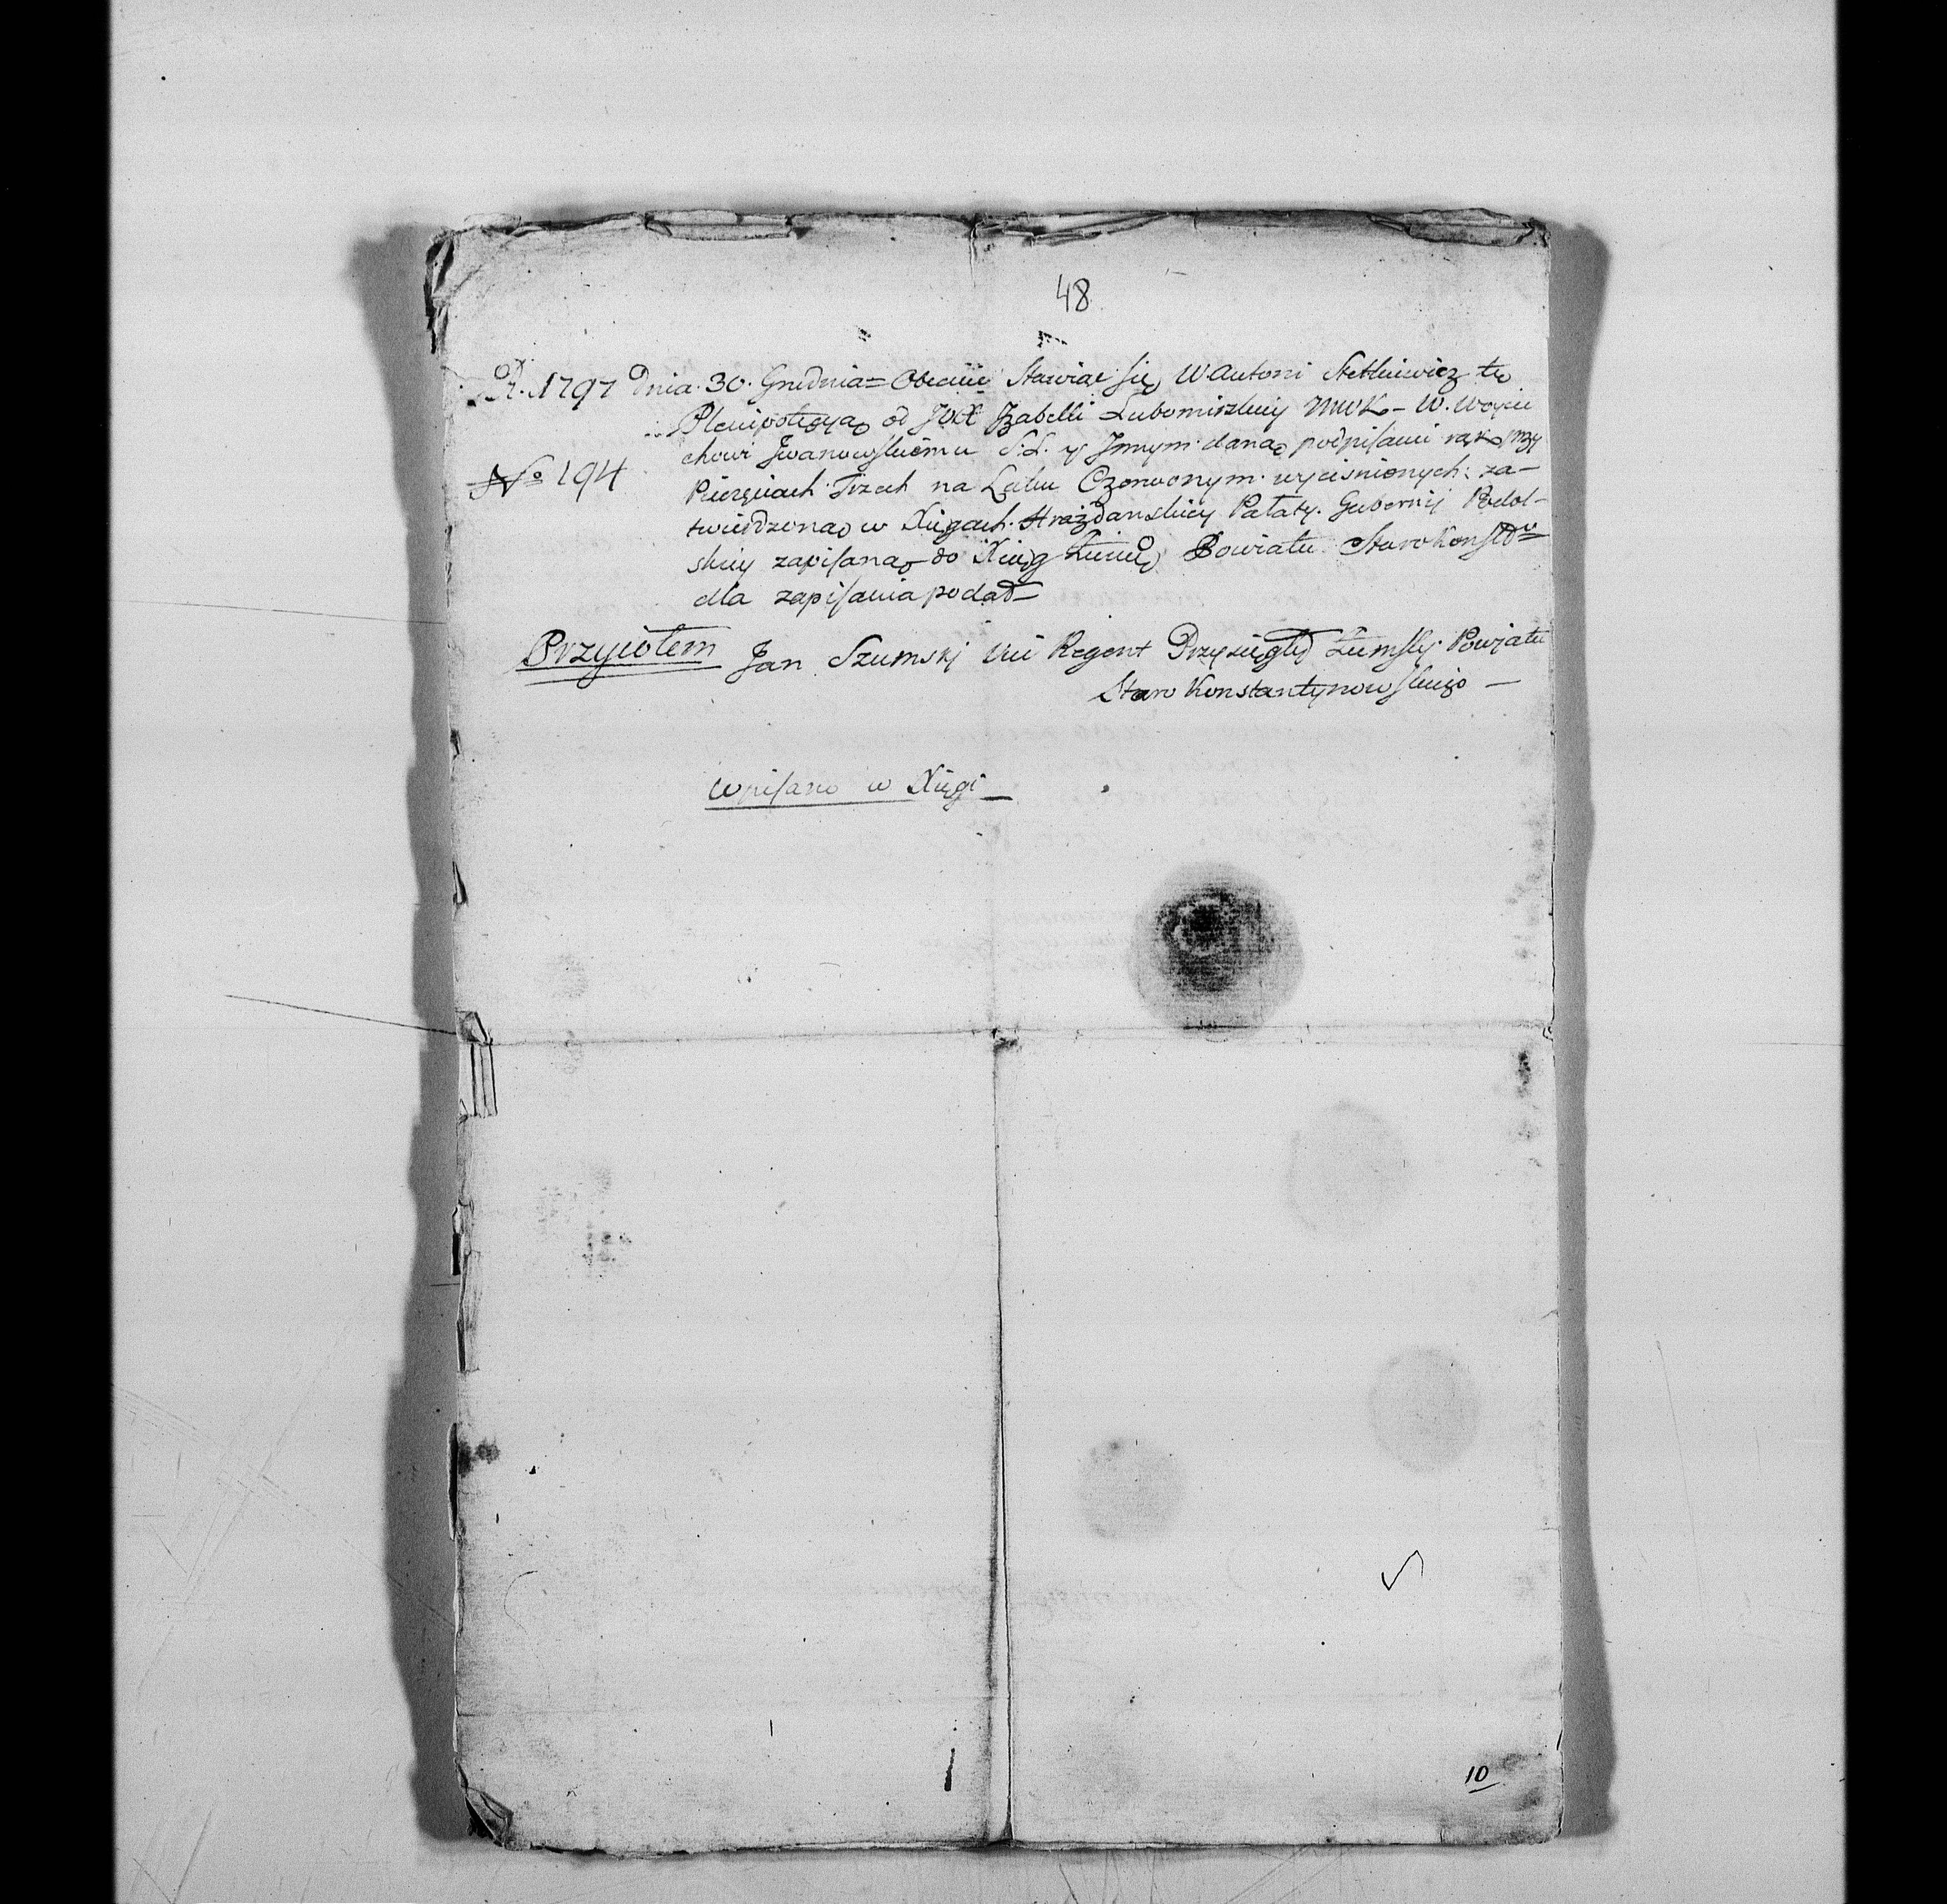 48
R. 1797 Dnia 30. Grudnia = Obecnie Stawiąc się W Antoni tę
Plenipotencyą od JOX Izabelli Lubomirskiey MWK – W. Woycie
chowi Iwanowskiemu S.L. y Innym daną podpisami rąk przy
No 194
Pieczęciach Trzech na Laku Czerwonym wyciśnionych za–
twierdzoną w Xięgach Hrażdanskiey Pałaty Gubernij Podol–
skiey zapisaną do Xiąg Powiatu StaroKonstow
dla zapisania podał –
Przyiołem Jan Szumski Regent Przysięgły Ziemsky Powiatu
Staro Konstantynowskiego –
Wpisano w Xięgi
10